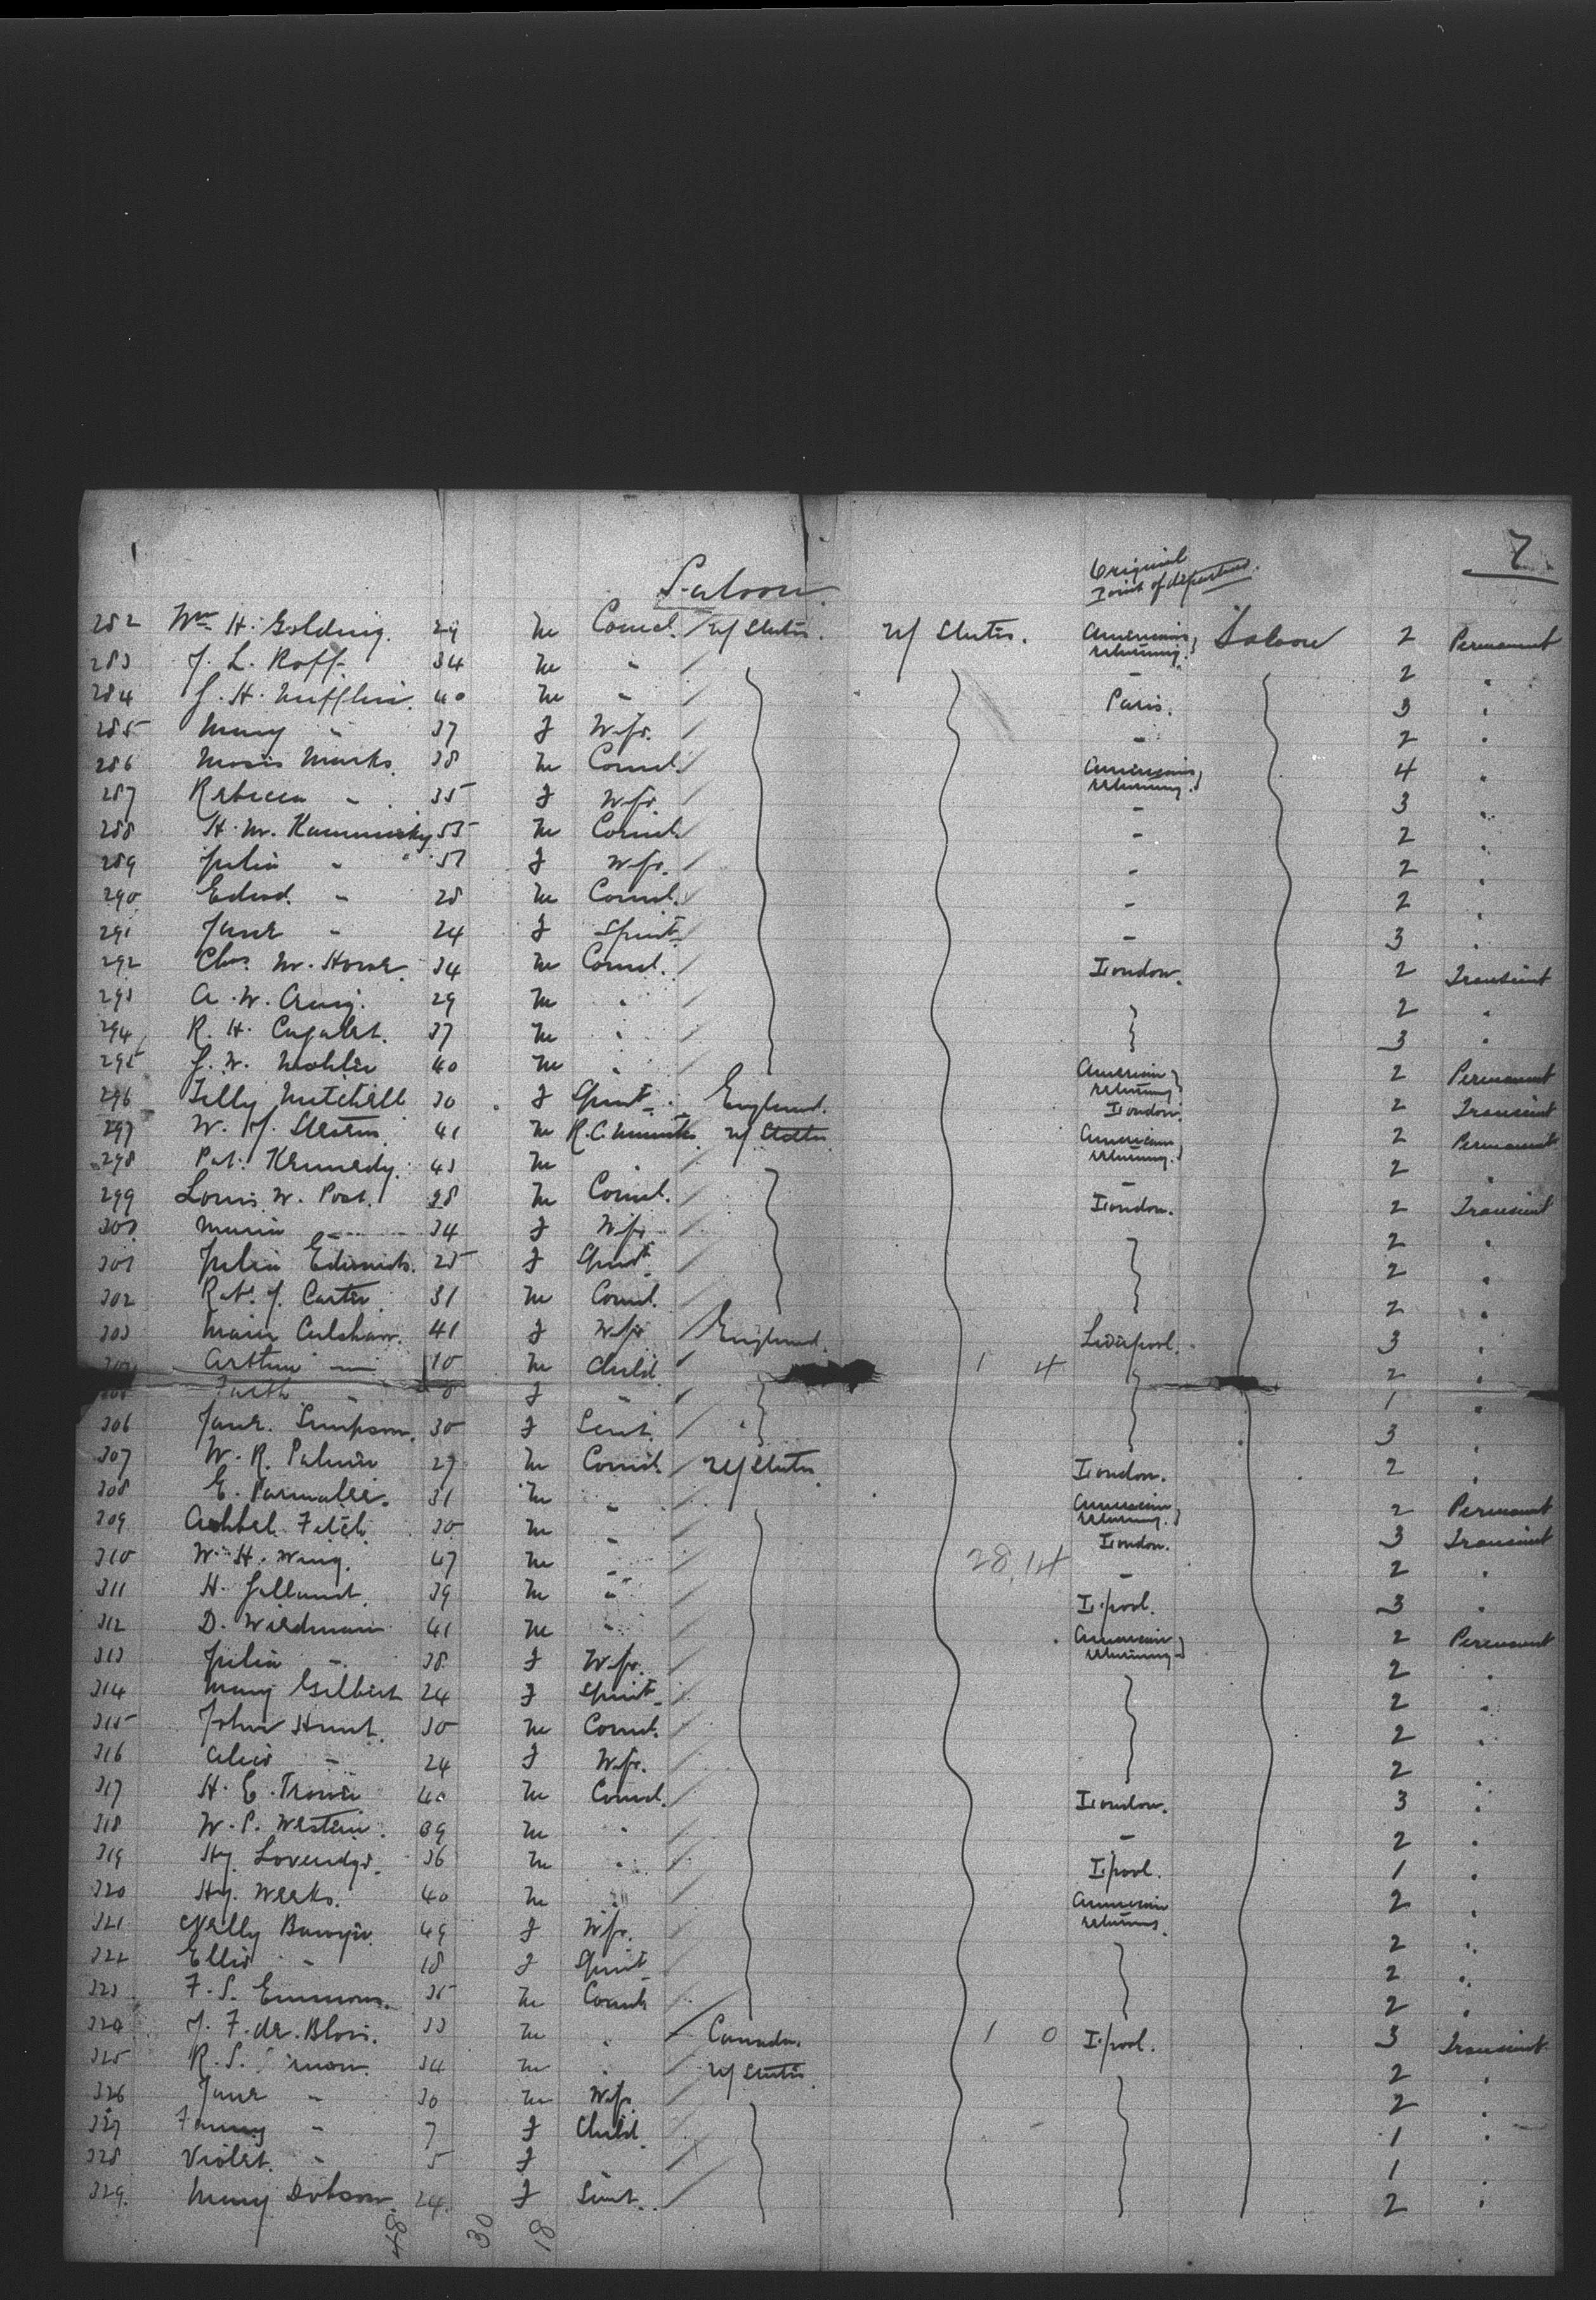 7
Saloon
Original Point of departure.
282 Wm H. Golding. 29 M Comcl. U/States. U/States. Americans returning. Saloon 2 Permanent
283 J. L. Roff. 34 M " - 2 "
284 J. H. Mifflin. 40 M " Paris. 3 "
285 Mary " 37 F Wife. - 2 "
286 Moses Marks. 38 M Comcl. Americans returning. 4 "
287 Rebecca " 35 F Wife - 3 "
288 H. M. Kaminsky 55 M Comcl. - 2 "
289 Julia " 51 F Wife. - 2 "
290 Edwd. " 28 M Comcl. - 2 "
291 Jane " 24 F Spinst. - 3 "
292 Chas. M. Howe 34 M Comcl. London. 2 Transient
293 A. W. Craig. 29 M " 2 "
294 R. H. 37 M " 3 "
295 J. W. Mohler 40 M " American returning 2 Permanent
296 Tilly Mitchell 30 F Spinst. England. London 2 Transient
297 W. J. 41 M R.C. Minister U/States American returning. 2 Permanent
298 Pat. Kennedy. 43 M " - 2 "
299 Louis W. Post. 38 M Comcl. London. 2 Transient
300 Marie " 34 F Wife 2 "
301 Julia Edwards. 25 F Spinst 2 "
302 Robt. J. Carter. 31 M Comcl. 2 "
303 Marie Culshaw. 41 F Wife England. Liverpool. 3 "
Arthur " 10 M Child 1 4 2 "
8 F " 1 "
306 Jane Simpson. 30 F Servt. 3 "
307 W. R. Palmer 27 M Comcl. U/States London. 2 "
308 E. Parmalee. 31 M " American returning. 2 Permanent
309 Ashbel Fitch 30 M " London. 3 Transient
310 W. H. Wing. 47 M " 28.14 - 2 "
311 H. Galland. 39 M " L'pool. 3 "
312 D. Wiedman 41 M " American returning. 2 Permanent
313 Julia " 38 F Wife. 2 "
314 Mary Gilbert 24 F Spinst. 2 "
315 John Hunt. 30 M Comcl. 2 "
316 Alice " 24 F Wife. 2 "
317 H. E. Trower 40 M Comcl. London. 3 "
318 W. P. Western. 39 M " - 2 "
319 Hy. 36 M " L'pool. 1 "
320 Hy. Weeks. 40 M " American returning. 2 "
321 Nelly 49 F Wife. 2 "
322 Ellis " 18 F Spinst 2 "
323 F. S. Emmons. 35 M Comcl. 2 "
324 J. F. de Blois. 33 M " Canada. 1 0 L'pool. 3 Transient
325 R. S. 34 M " U/States. 2 "
326 Jane " 30 M Wife. 2 "
327 Fanny " 7 F Child. 1 "
328 Violet. " 5 F 1 "
329. Mary Dobson. 24. F Servt. 2 "
48 30 18